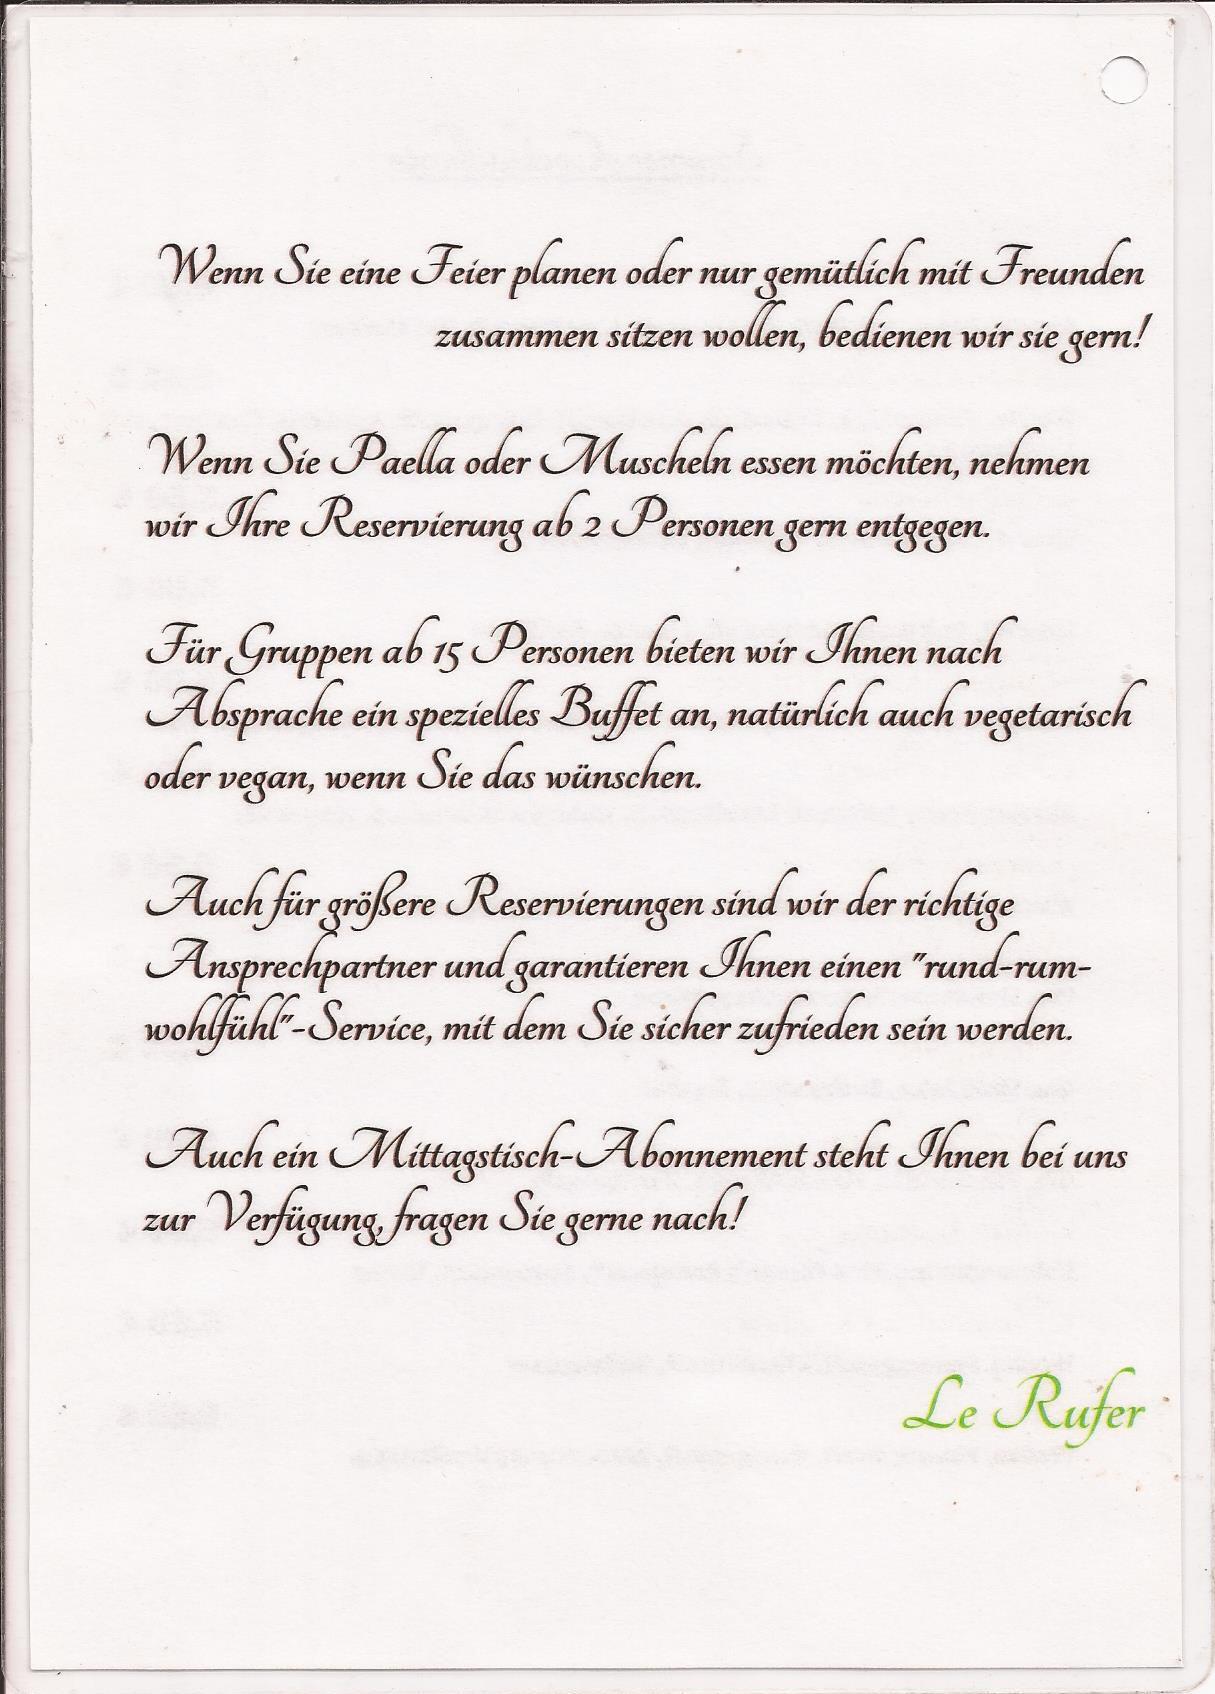 Wenn Sie eine Feier planen oder nur gemütlich mit Freunden
zusammen sitzen wollen, bedienen wir sie gern!
Wenn Sie Paella oder Muscheln essen möchten, nehmen
wir Ihre Reservierung ab 2 Personen gern entgegen.
Für Gruppen ab 15 Personen bieten wir Ihnen nach
Absprache ein spezielles Buffet an, natürlich auch vegetarisch
oder vegan, wenn Sie das wünschen.
Auch für größere Reservierungen sind wir der richtige
Ansprechpartner und garantieren Ihnen einen "rund-rum-
wohlfühl"-Service, mit dem Sie sicher zufrieden sein werden.
Auch ein Mittagstisch-Abonnement steht Ihnen bei uns
zur Verfügung, fragen Sie gerne nach!
Le Rufer